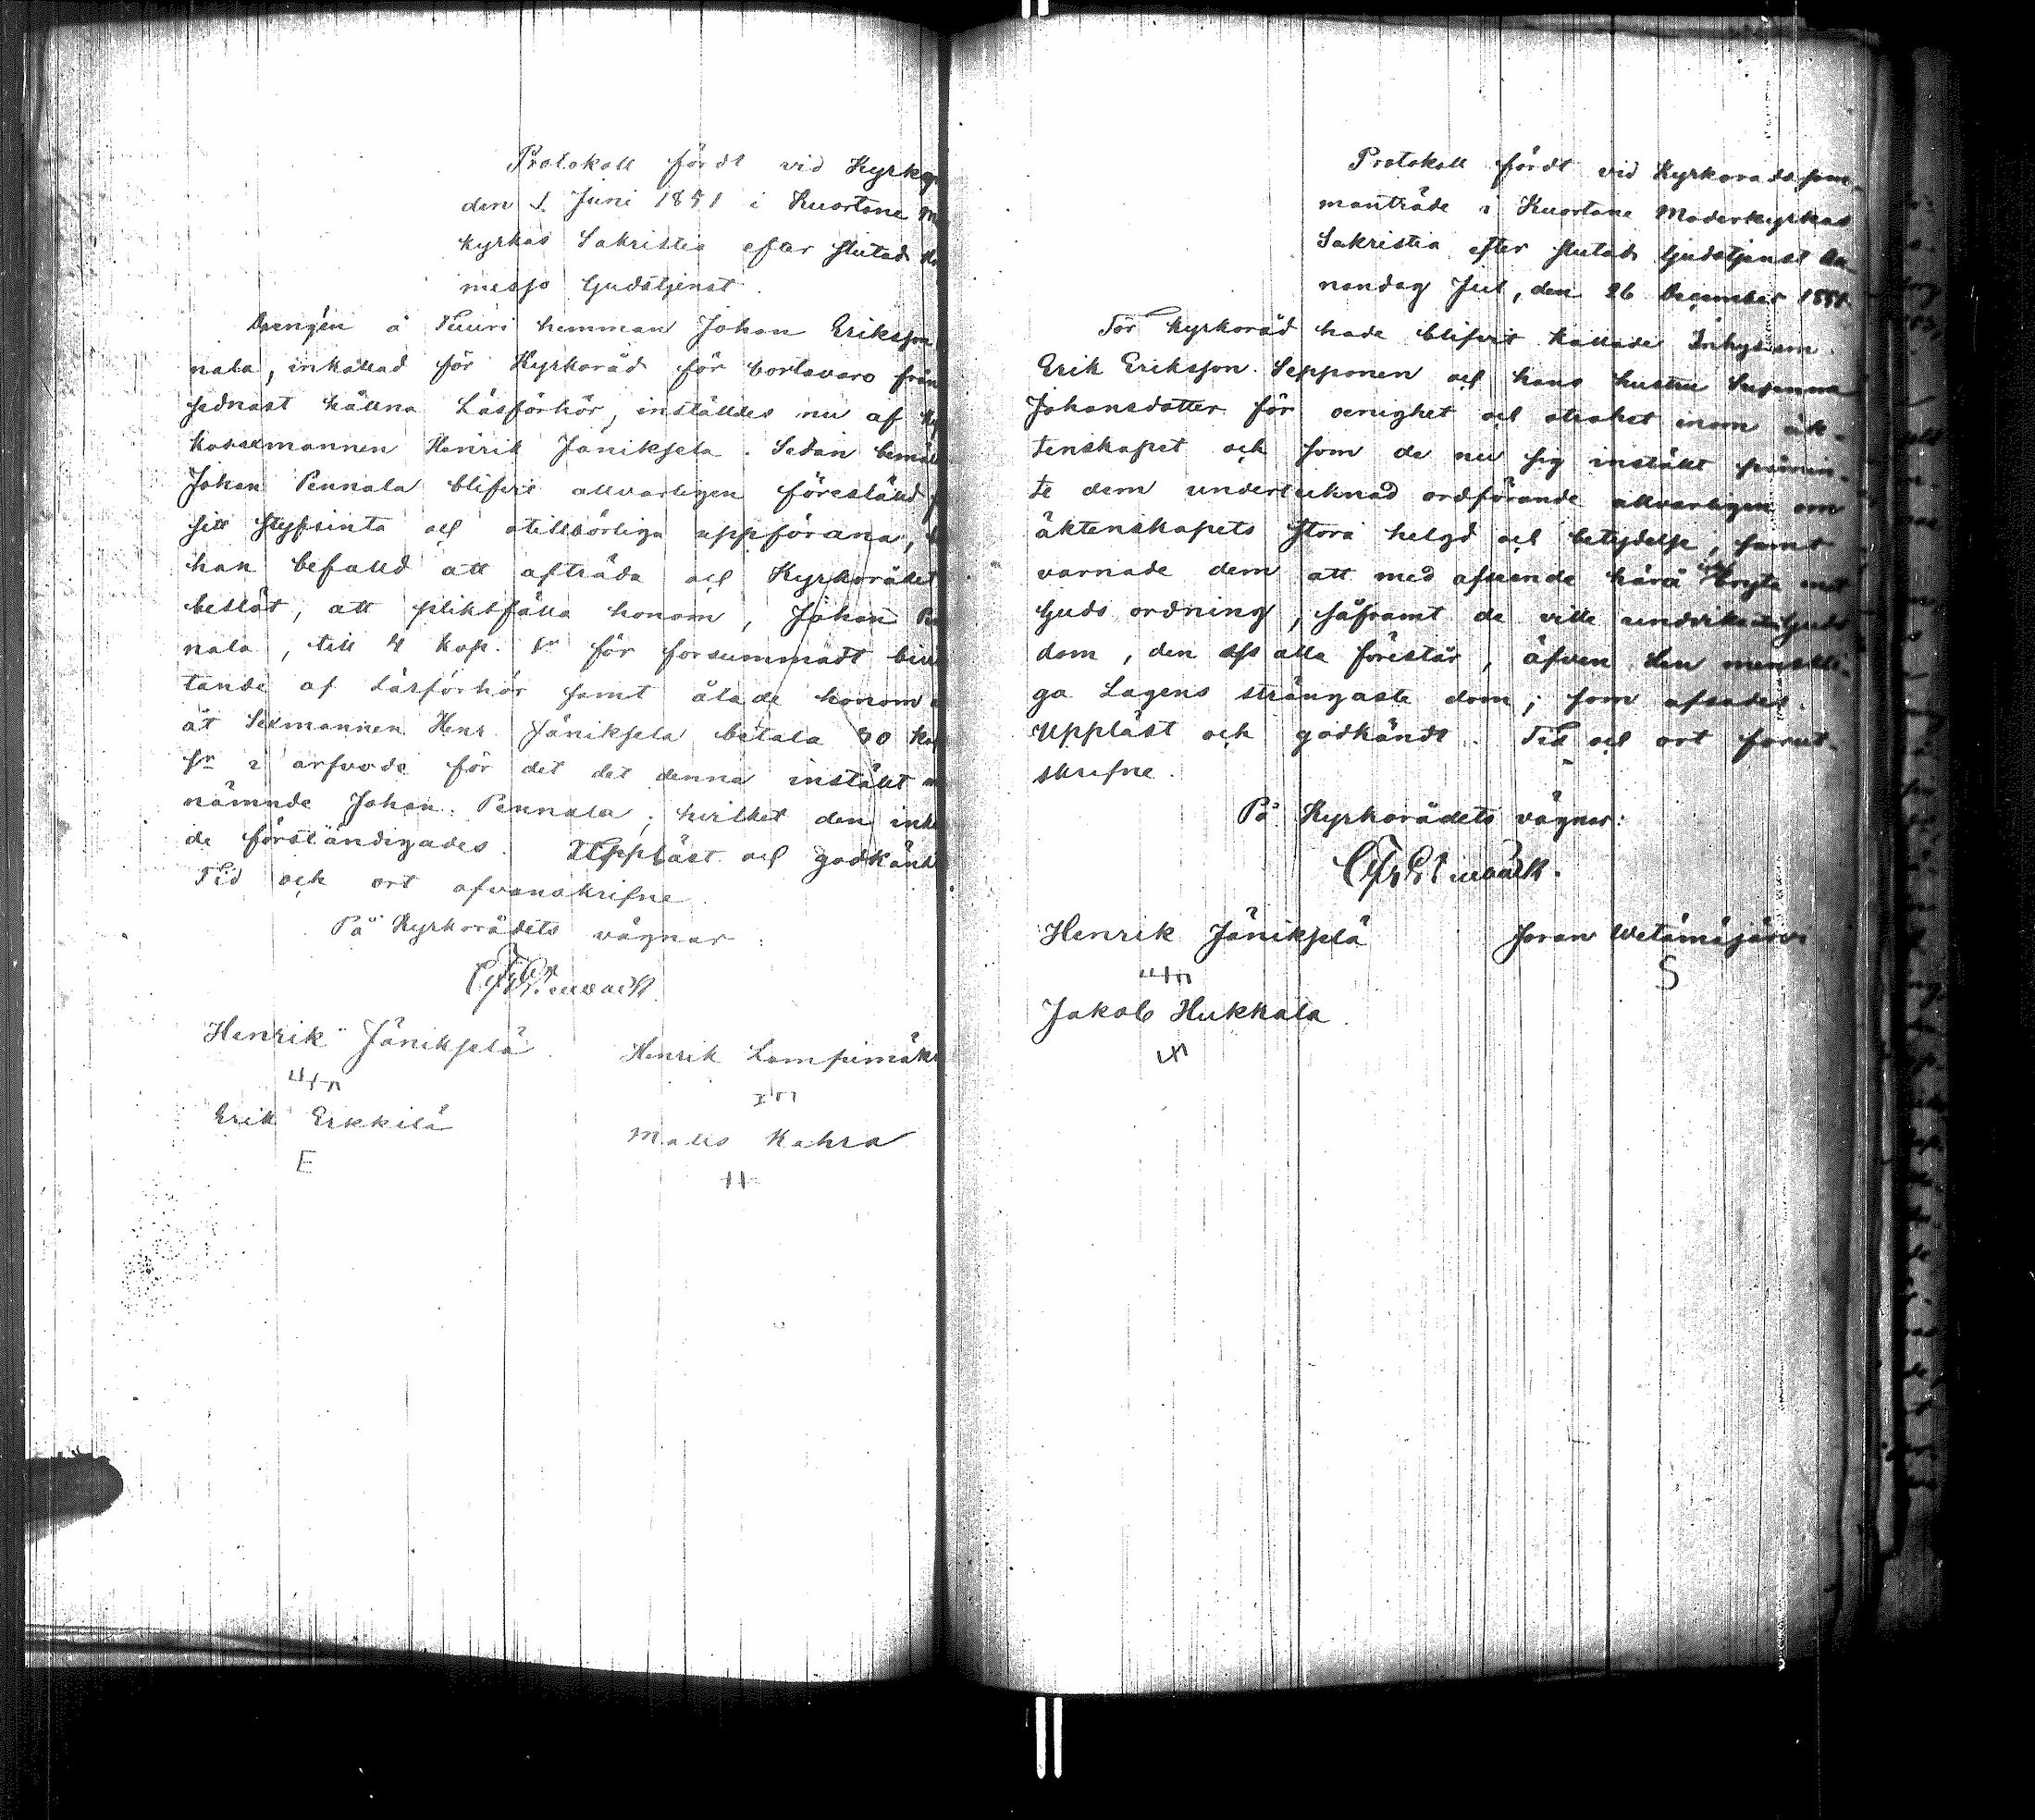 Protokoll fördt vid Kyrko
den 1. Juni 1851 i Kuortane M
kyrkas Sakristia efter slutad
messo Gudstjenst.
Drengen å Tuuri hemman Johan Eriksson
nala, inkallad för Kyrkoråd för bortavaro från
sednast hållna Läsförhör, instäldes nu af Ky
kosexmannen Henrik Jäniksela. Sedan bemäl
Johan Pennala blifvit allvarligen föreställd f
sitt styfsinta och otillbörliga uppförana,
han befalld att afträda och Kyrkorådet
beslöt, att pliktfälla honom, Johan Pe
nala, till 4 Kop. Sr för försummadt bivi
tande af Läsförhör samt ålade honom
åt Sexmannen Henr. Jäniksela betala 30 Kop
Sr i arfvode för det det denna instält
nämnde Johan Pennala; hvilket den inkal
de förständigades. Uppläst och godkändt
Tid och ort ofvanskrifne.
På Kyrkorådets vägnar:
Henrik Jänikselä Henrik Lampimäki
Erik Erkkilä Matts Kahra
E
Protokoll fördt vid Kyrkorådssam-
manträde i Kuortane Moderkyrkas
Sakristia efter slutad Gudstjenst An-
nandag Jul, den 26 December 1851.
För Kyrkoråd hade blifvit kallade Inhysesm.
Erik Eriksson Sepponen och hans hustru Susanna
Johansdotter för oenighet och otrohet inom äk-
tenskapet och som de nu sig instält påmin-
te dem undertecknad ordförande allvarligen om
äktenskapets stora helgd och betydelse, samt
varnade dem att med afseende härå icke bryta mot
Guds ordning, såframt de ville undvika Guds
dom, den oss alla förestår, äfven den menskli-
ga Lagens strängaste dom; som afsades.
Uppläst och godkändt. Tid och ort förut-
skrifne.
På Kyrkorådets vägnar:
Henrik Jänikselä Johan Wetämäjärvi
S
Jakob Hukkala.